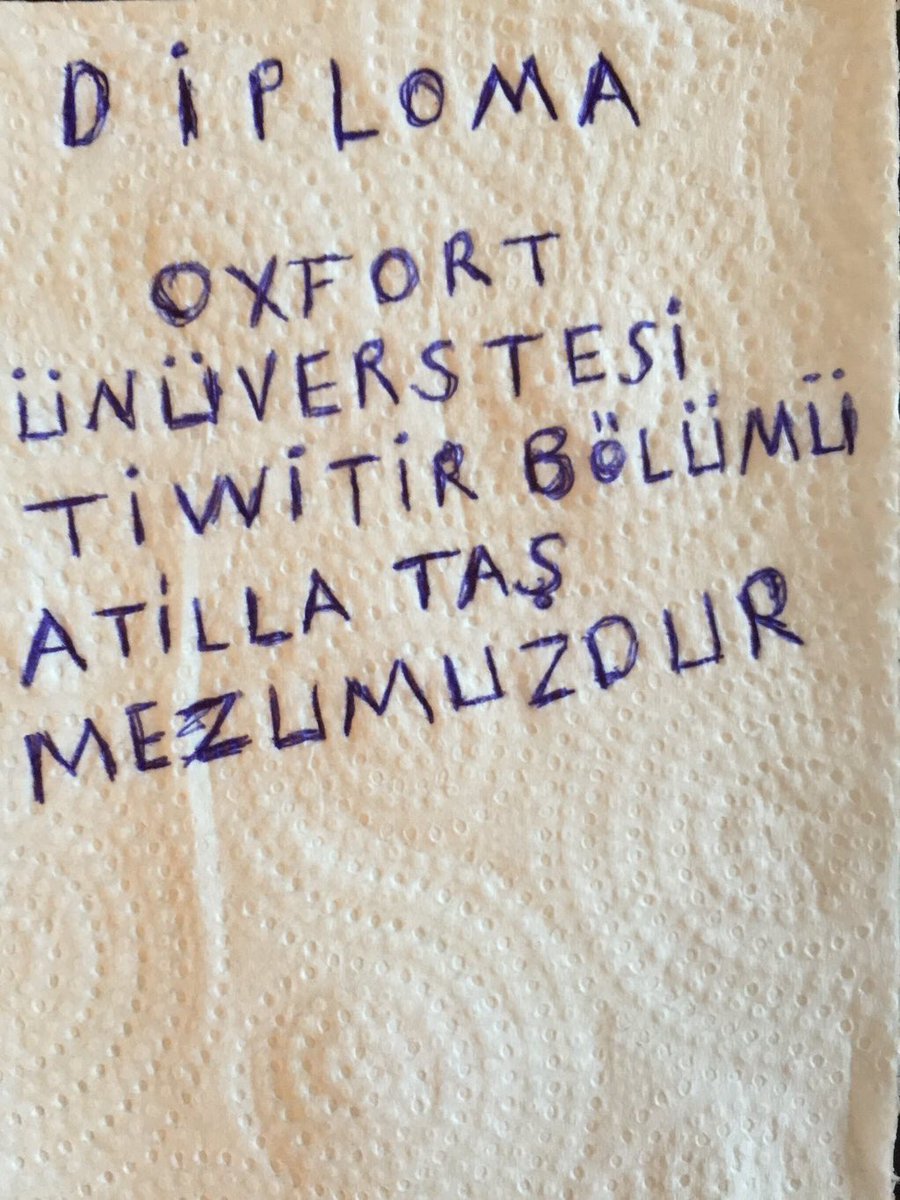 DİPLOMA
OXFORT
ÜNÜVERSTESİ
TİWİTİR BÖLÜMÜ
ATİLLA TAŞ
MEZUMUZDUR